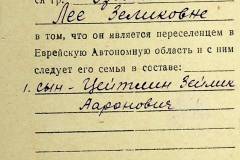 Лее Зеликовне
в том, что он является переселенцем в
Еврейскую Автономную область и с ним
следует его семья в составе:
1. сын - Цейтлин Зейлик
Ааронович